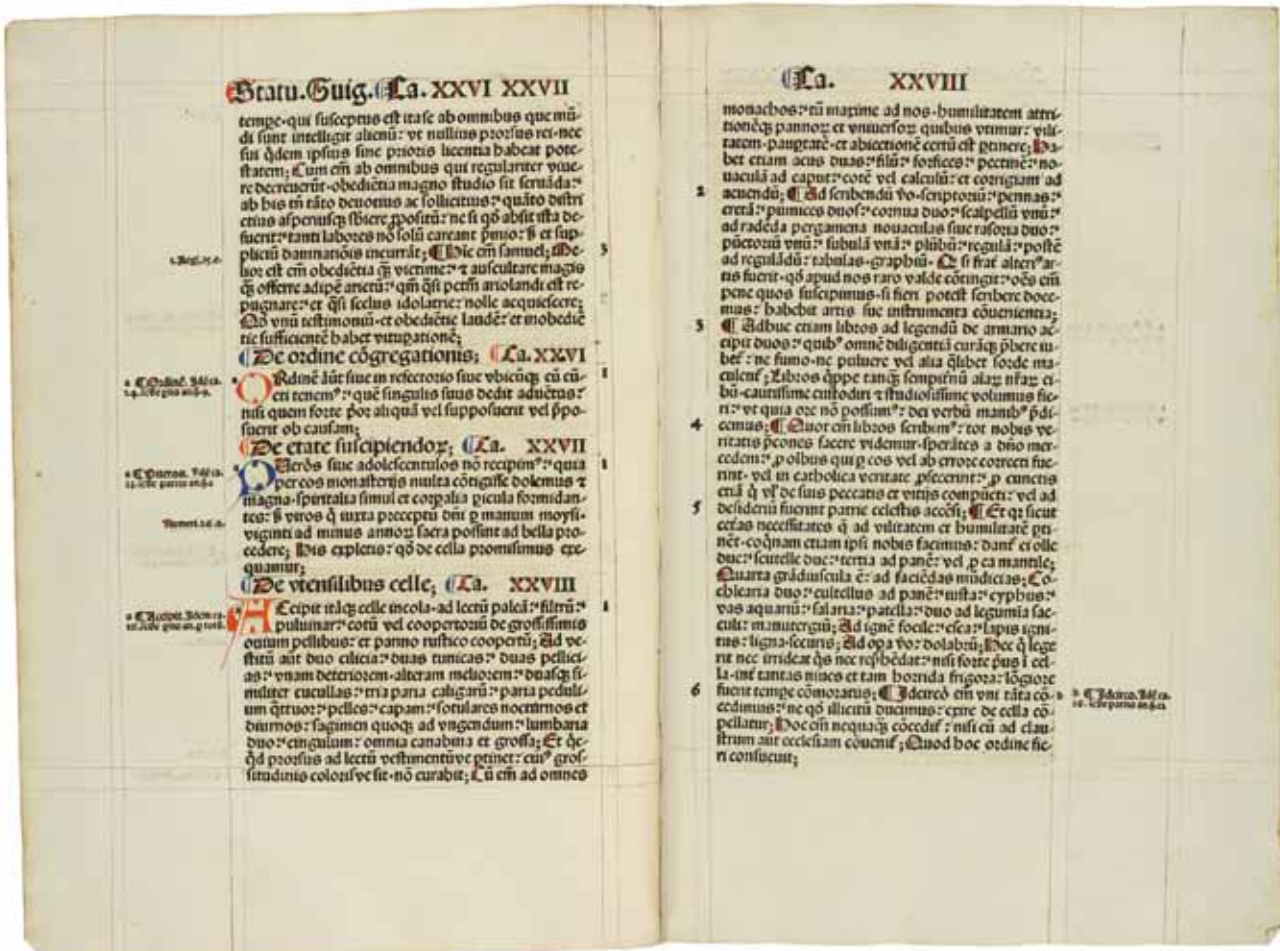 Statu. Guig. Ca. XXVI XXVII
tempe·qui susceptus est ita se ab omnibus que mū-
di sunt intelligit alienū: vt nullius prorsus rei·nec
sui q̄dem ipsius sine prioris licentia habeat pote-
statem; Cum em̄ ab omnibus qui regulariter viue-
re decreuerūt·obediētia magno studio sit seruāda:
ab his tn̄ tāto deuotius ac sollicitius: quāto distri
ctius asperiusq; sbiere ꝓpositū: ne si qd̄ absit ista de-
fuerit: tanti labores nō solū careant p̄mio: ß et sup-
pliciū damnatiōis incurrāt; ¶ Hic em̄ samuel; Me-
lior est em̄ obediētia q̄ꝫ victime: ⁊ auscultare magis
q̄ꝫ offerre adipē arietū: qm̄ q̄si pctm̄ ariolandi est re-
pugnare: et q̄si scelus idolatrie: nolle acquiescere;
Nō vnū testimoniū·et obediētie laudē: et inobediē
tie sufficientē habet vituꝑationē;
3
De ordine cōgregationis; Ca. XXVI
ORdinē aūt siue in refectorio siue vbicūq; cū cū-
cti tenemꝰ: quē singulis suus dedit aduētus:
nisi quem forte p̄or aliquā vel supposuerit vel p̄po-
suerit ob causam;
1
De etate suscipiendoꝝ; Ca. XXVII
PVerōs siue adolescentulos nō recipimꝰ: quia
per eos monasterijs multa cōtigisse dolemus ⁊
magna·spiritalia simul et corꝑalia ꝑicula formidan-
tes: ß viros q̄ iuxta preceptū dn̄i ꝑ manum moysi·
viginti ad minus annoꝝ sacra possint ad bella pro-
cedere; His expletis: qd̄ de cella promisimus exe-
quamur;
Numeri.
1
De vtensilibus celle; Ca. XXVIII
ACcipit itāq; celle incola·ad lectū paleā: filtrū:
puluinar: cotū vel coopertoriū de grossissimis
ouium pellibus: et panno rustico coopertū; Ad ve-
stitū aūt duo cilicia: duas tunicas: duas pellici-
as: vnam deteriorem·alteram meliorem: duasq; si-
militer cucullas: tria paria caligarū: paria peduli-
um q̄ttuor: pelles: capam: sotulares nocturnos et
diurnos: sagimen quoq; ad vngendum: lumbaria
duo: cingulum: omnia canabina et grossa; Et q̄c-
q̄d prorsus ad lectū vestimentūve ꝑtinet: cuiꝰ gros-
situdinis colorisve sit·nō curabit; Cū em̄ ad omnes
1
Ca. XXVIII
monachos: tū maxime ad nos·humilitatem attri
tionēq; pannoꝝ et vniuersoꝝ quibus vtimur: vili-
tatem·pauꝑtatē·et abiectionē certū est ꝑtinere; Ha-
bet etiam acus duas: filū: forfices: pectinē: no-
uaculā ad caput: cotē vel calculū: et corrigiam ad
2 acuendū; ¶ Ad scribendū vo·scriptoriū: pennas:
cretā: pumices duos: cornua duo: scalpellū vnū:
ad radēda pergamena nouaculas siue rasoria duo:
pūctoriū vnū: subulā vnā: plūbū: regulā: postē
ad regulādū: tabulas·graphiū· Qd̄ si frat̄ alterꝰ ar-
tis fuerit·qd̄ apud nos raro valde cōtingit: oēs em̄
pene quos suscipimus·si fieri potest scribere doce-
mus: habebit artis sue instrumenta cōuenientia;
3 ¶ Adhuc etiam libros ad legendū de armario ac-
cipit duos: quibꝰ omnē diligentiā curāq; p̄bere iu-
bet̄: ne fumo·ne puluere vel alia q̄libet sorde ma-
culent̄; Libros q̄ppe tanq̄ꝫ sempit̄nū alaꝝ nr̄aꝝ ci-
bū·cautissime custodiri ⁊ studiosissime volumus fie-
ri: vt quia ore nō possumꝰ: dei verbū manibꝰ p̄di
4 cemus; ¶ Quot em̄ libros scribimꝰ: tot nobis ve-
ritatis p̄cones facere videmur·sperātes a dn̄o mer-
cedem: ꝓ oībus qui ꝑ eos vel ab errore correcti fue-
rint·vel in catholica veritate ꝓfecerint: ꝓ cunctis
etiā q̄ vl̓ de suis peccatis et vitijs compūcti: vel ad
5 desideriū fuerint patrie celestis accēsi; ¶ Et qꝛ sicut
cet̄as necessitates q̄ ad vilitatem et humilitatē ꝑti-
nēt·coq̄nam etiam ipsi nobis facimus: dant̄ ei olle
due: scutelle due: tertia ad panē: vel ꝓ ea mantile;
Quarta grādiuscula ē: ad faciēdas mūdicias; Co-
chlearia duo: cultellus ad panē: iusta: cyphus:
vas aquariū: salaria: patella: duo ad legumia sac-
culi: manutergiū; Ad ignē focile: esca: lapis igni-
tus: ligna·securis; Ad oꝑa vo: dolabrū; Hec q̄ lege
rit nec irrideat q̄s nec rep̄hēdat: nisi forte p̄us ī cel-
la·int̄ tantas niues et tam horrida frigora: lōgiore
6 fuerit tempe cōmoratus; ¶ Idcirco em̄ vni tāta cō-
cedimus: ne qd̄ illicitū ducimus: exire de cella cō-
pellatur; Hoc em̄ nequaq̄ꝫ cōcedit̄: nisi cū ad clau-
strum aut ecclesiam cōuenit̄; Quod hoc ordine fie-
ri consueuit;